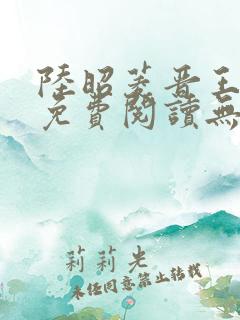 陸昭菱晋王
免費閱讀無
莉莉光
未經同意禁止轉載